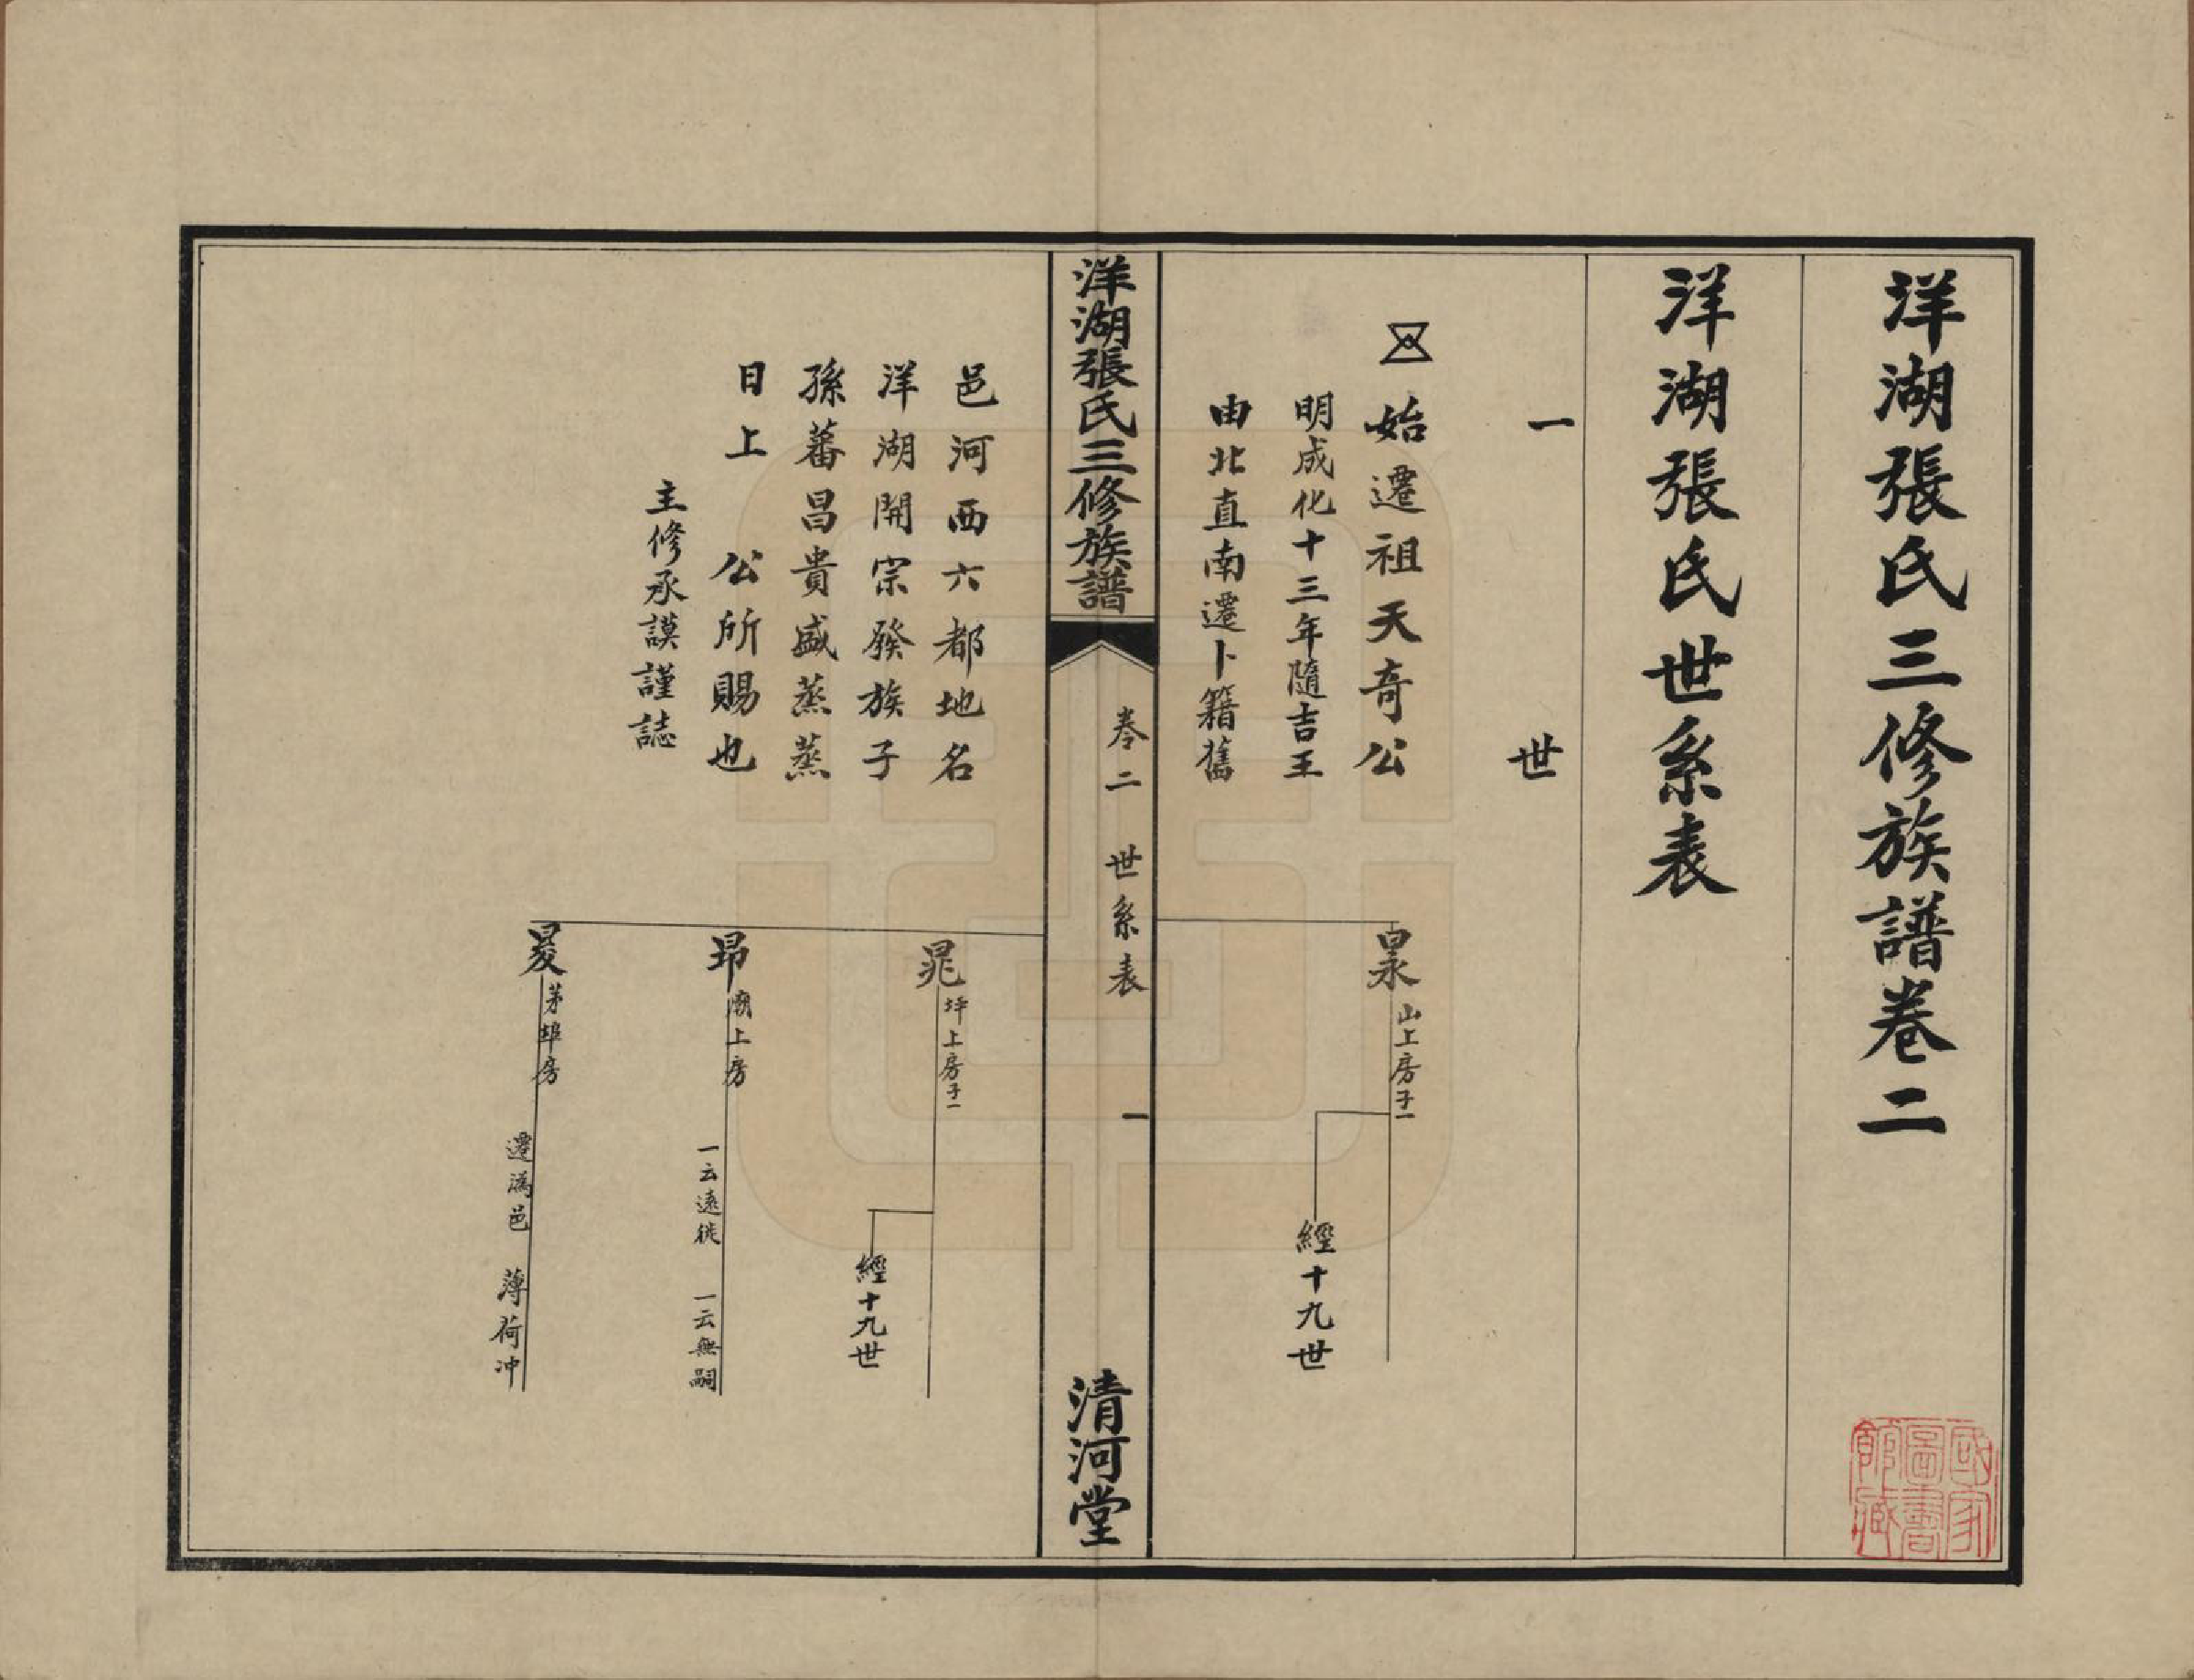 洋湖張氏三修族譜卷二
洋湖張氏世系表
一世
始遷祖天奇公
明成化十三年隨吉王
由北直南遷卜籍舊
㫧山上房子一
經十九世
洋湖張氏三修族譜
卷二 世系表 一
清河堂
邑河西六都地名
洋湖開宗發族子
孫蕃昌貴盛蒸蒸
日上 公所賜也
主修承謨謹誌
晁坪上房子一
經十九世
昂廟上房
一云遠徙 一云無嗣
茅埠房
遷溈邑 薄荷冲
國家圖書館藏